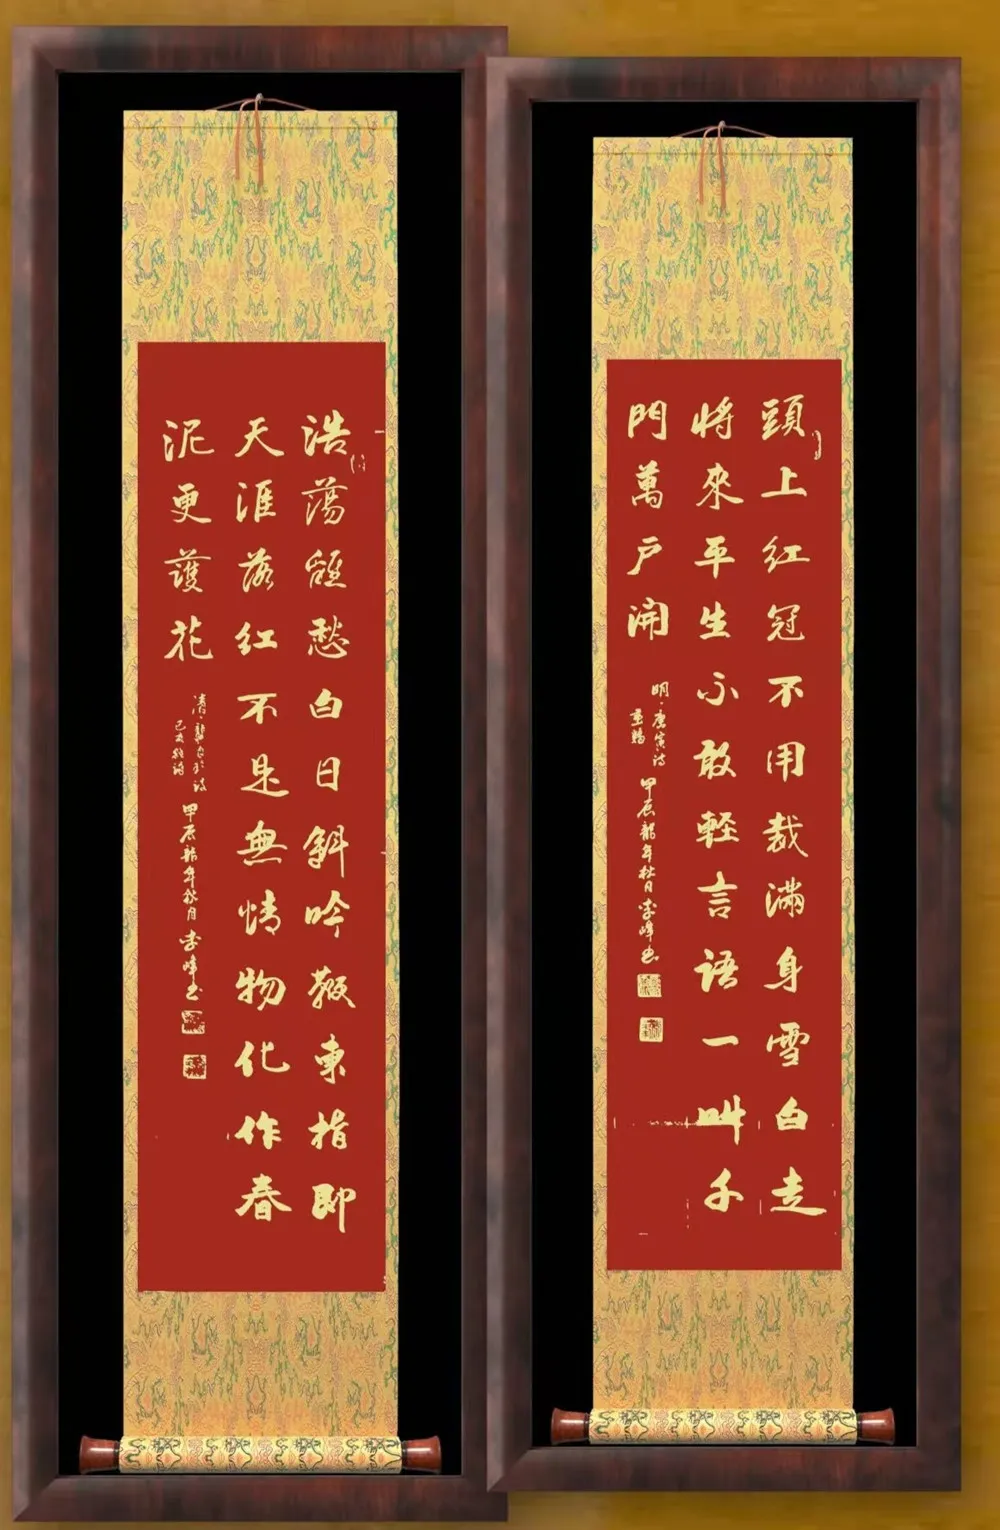 頭上红冠不用裁滿身雪白走
将來平生不敢輕言语一叫千
門萬户開
明·唐寅诗
画鷄
甲辰龍年秋月李峰书
浩蕩離愁白日斜吟鞭東指即
天涯落红不是無情物化作春
泥更護花
清·龔自珍诗
己亥雜詩
甲辰龍年秋月李峰书